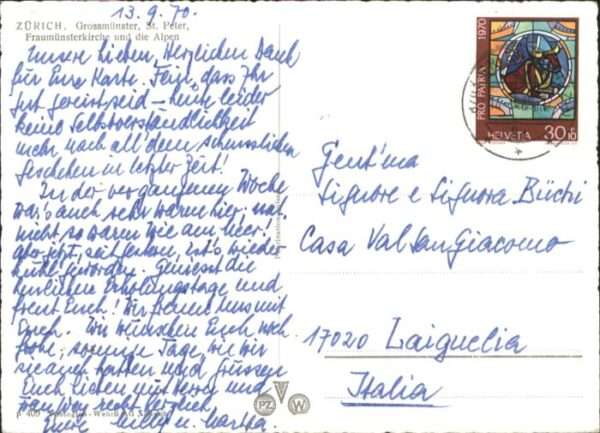 13.9.70.
ZÜRICH, Grossmünster, St. Peter,
Fraumünsterkirche und die Alpen
Unsere Lieben, Herzlichen Dank
für Eure Karte. Fein, dass Ihr
gut gereist seid – heute leider
keine Selbstverständlichkeit
mehr nach all dem scheusslichen
Geschehen in letzter Zeit!
In der vergangenen Woche
war's auch sehr warm hier, nat.
nicht so warm wie am Meer!
Ab jetzt, seit gestern, ist's wieder
kühl geworden. Geniesst die
herrlichen Erholungstage und
freut Euch! Wir freuen uns mit
Euch. Wir wünschen Euch noch
frohe, sonnige Tage, wie wir
sie auch hatten und grüssen
Euch Lieben mit Kuss und
recht herzlich
Eure Willy u. Martha.
PRO PATRIA 1970
HELVETIA 30+10
Gent'ma
Signore e Signora Büchi
Casa Val San Giacomo
17020 Laigueglia
Italia
PZ W